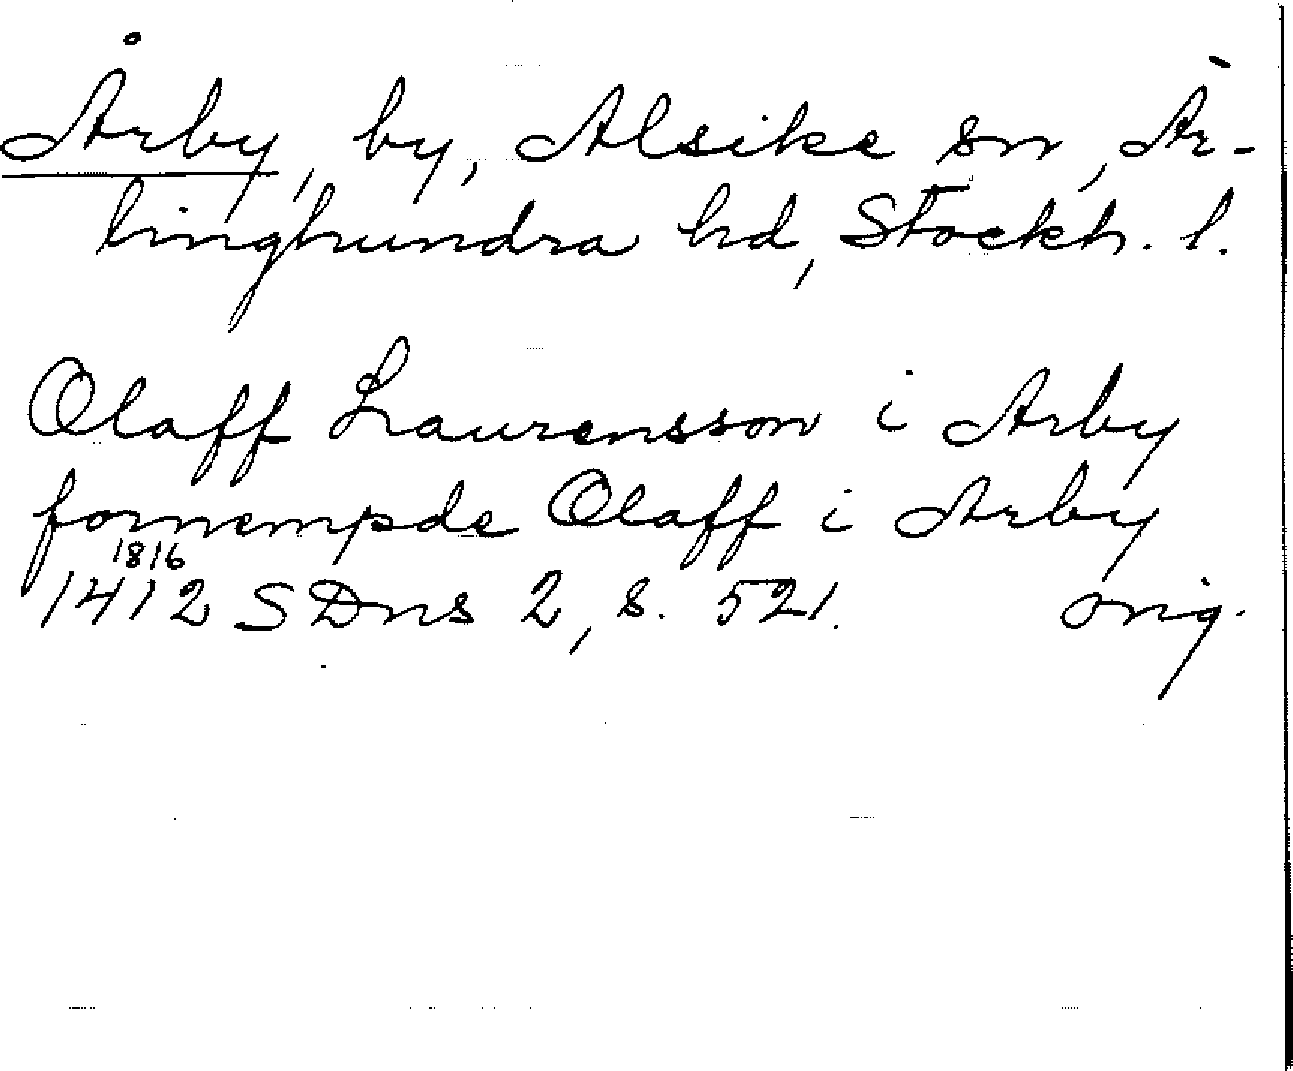 Årby, by, Alsike sn, Är-
linghundra hd, Stockh. l.
Olaff Laurensson i Arby
fornempde Olaff i Arby
1816
1412 SDns 2, s. 521. orig.